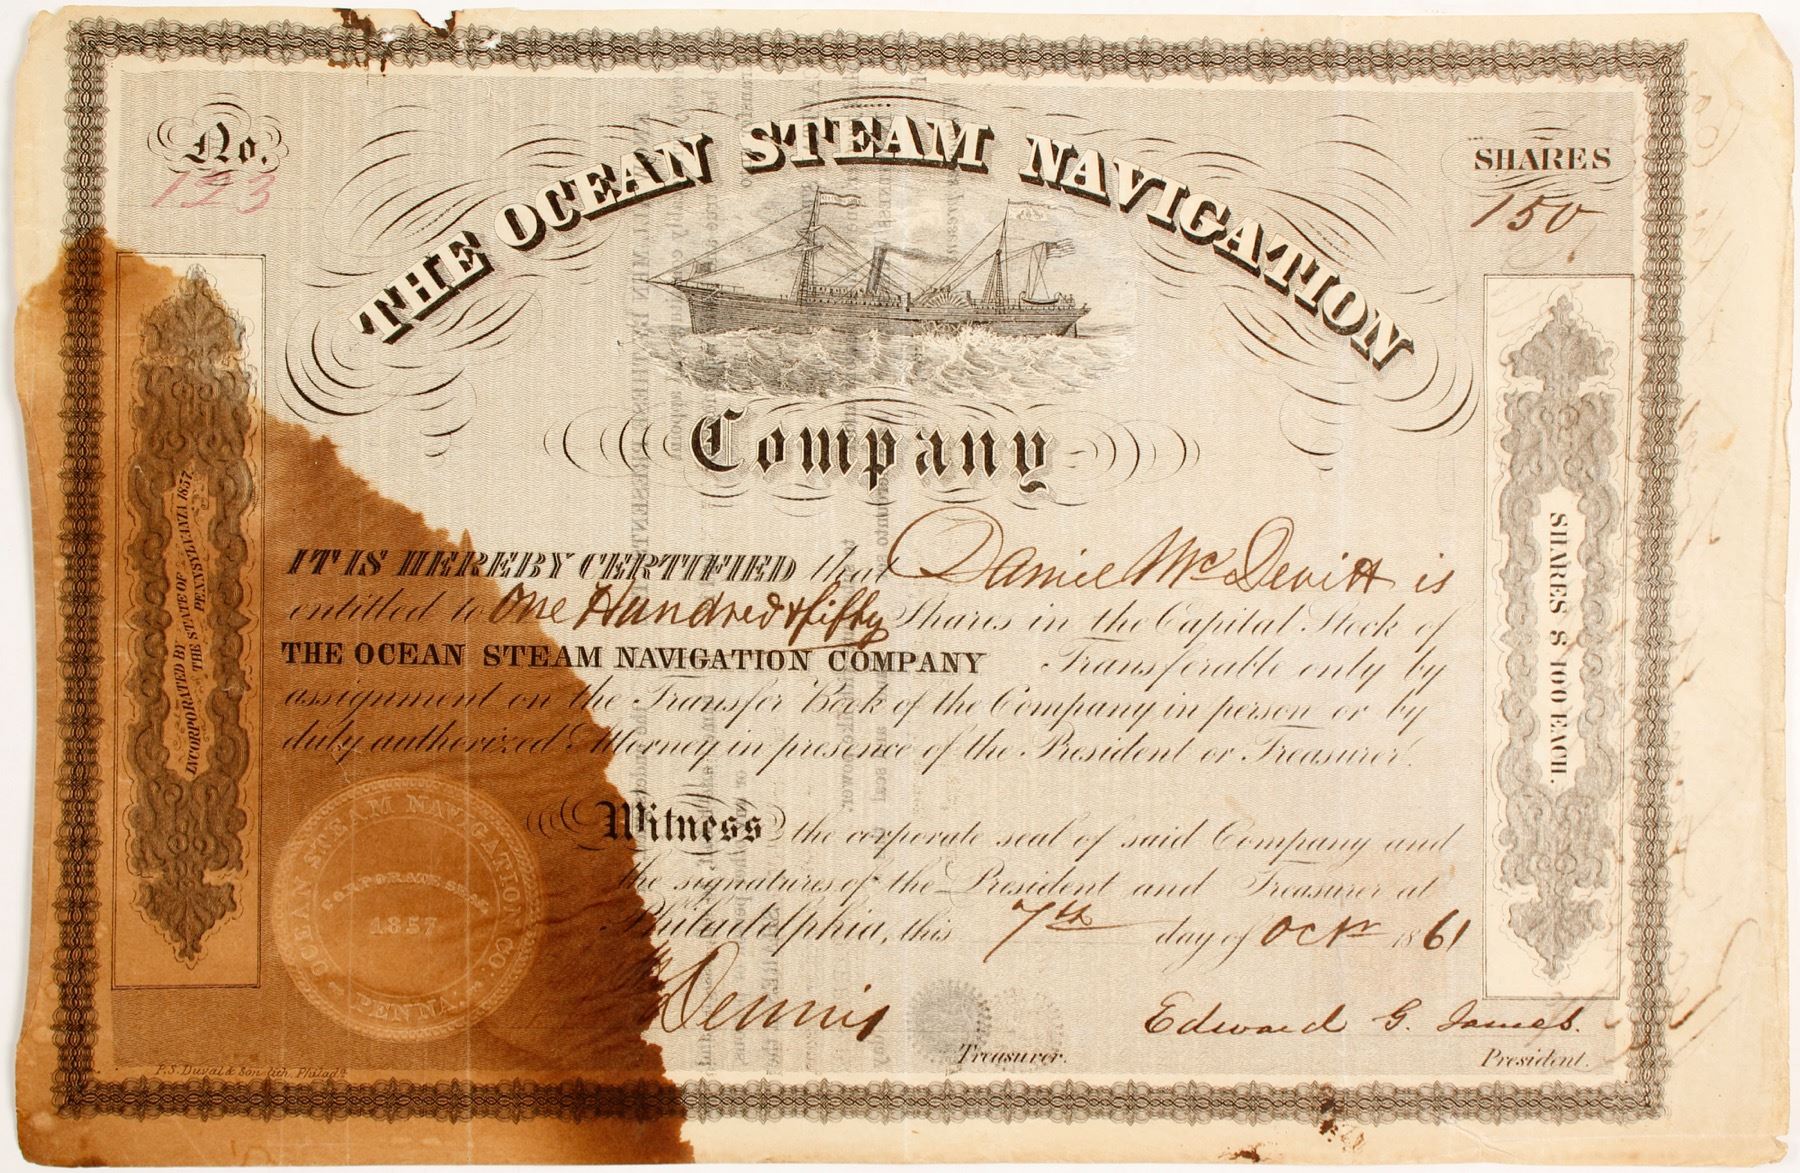 No.
123
SHARES
150
THE OCEAN STEAM NAVIGATION
Company
INCORPORATED BY STATE OF
THE PENNSYLVANIA 1857.
SHARES $100 EACH.
IT IS HEREBY CERTIFIED that Daniel McDevitt is
entitled to One Hundred & fifty Shares in the Capital Stock of
THE OCEAN STEAM NAVIGATION COMPANY Transferable only by
assignment on the Transfer Book of the Company in person or by
duly authorized Attorney in presence of the President or Treasurer.
Witness the corporate seal of said Company and
the signatures of the President and Treasurer at
Philadelphia, this 7th day of Octr 1861
OCEAN STEAM NAVIGATION CO.
CORPORATE SEAL
1857
PENNA.
Dennis
Treasurer.
Edward G. James.
President.
P.S. Duval & Son lith. Philada.